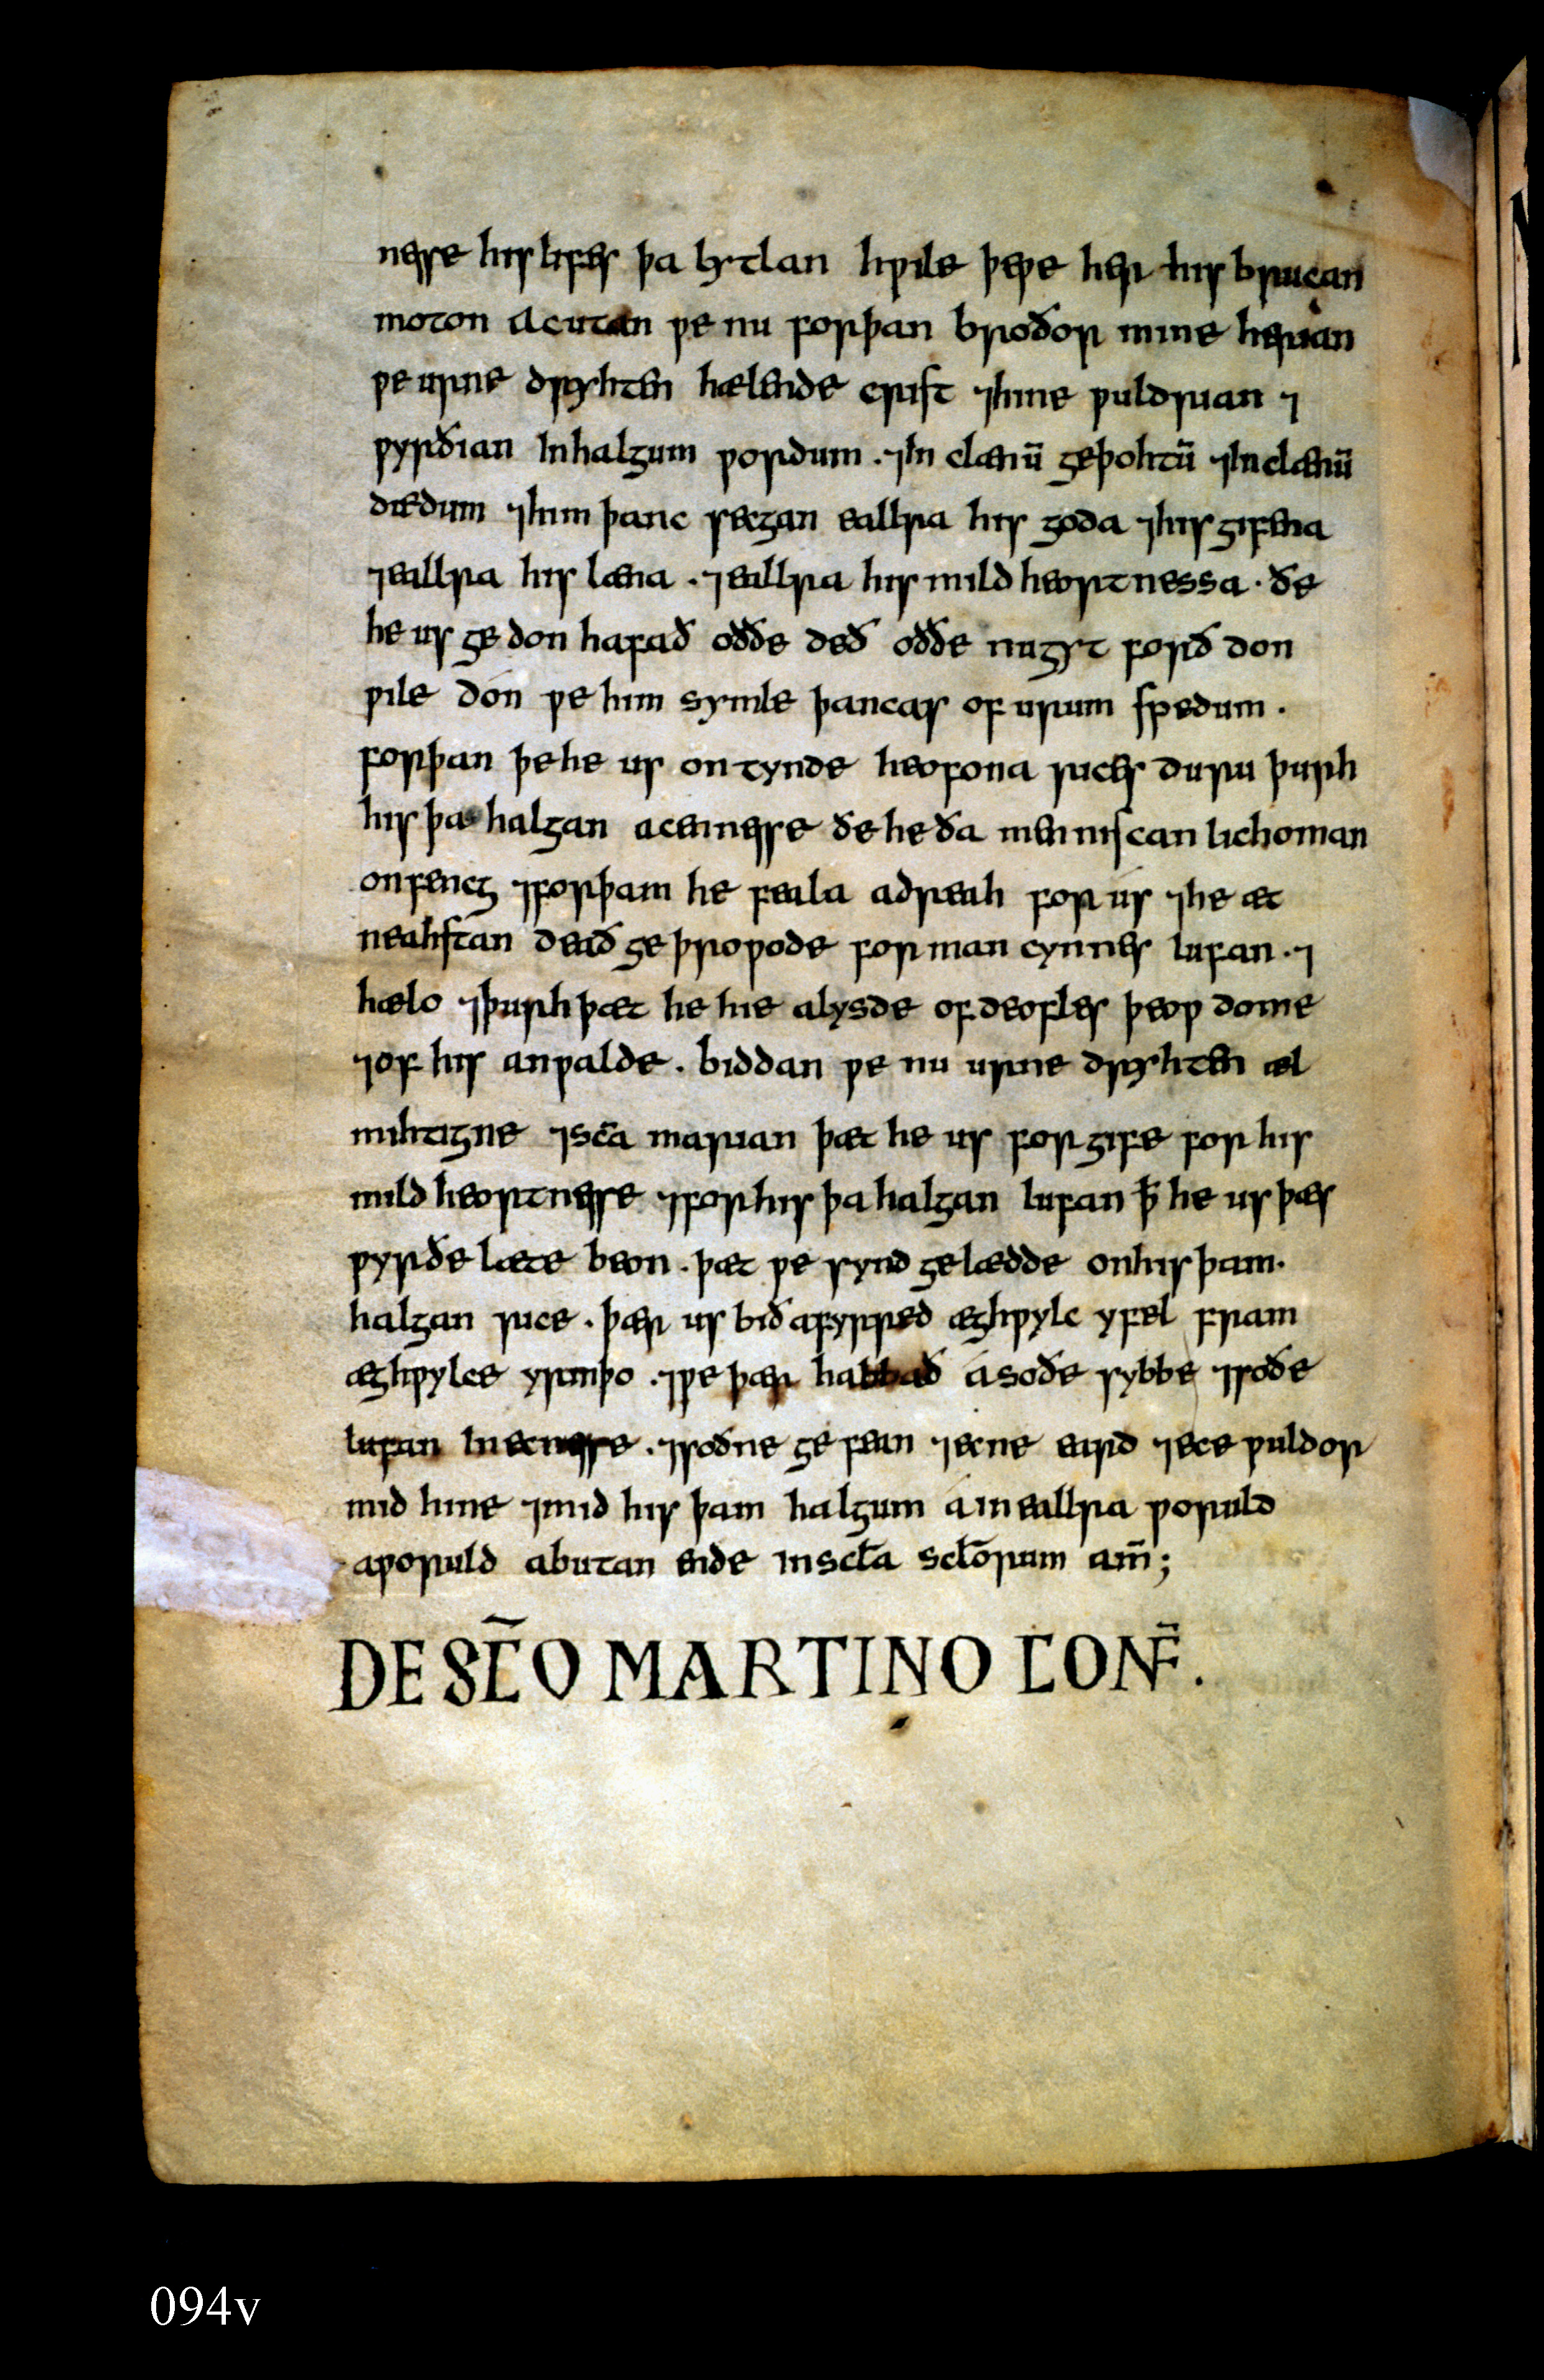 nesse his lifes þa lytlan hƿile þeƿe her his brucan
moton Acutan ƿe nu forþan broðor mine herian
ƿe urne dryhten hælende crist ⁊hine ƿuldrian ⁊
ƿyrðian Inhalgum ƿordum. ⁊In clænū geþohtū ⁊Inclænū
dædum ⁊him þanc secgan eallra his goda ⁊his gifena
⁊eallra his læna. ⁊eallra his mild heortnessa. ðe
he us ge don hafað oððe deð oððe nugyt forð don
ƿile dón ƿe him symle þancas of urum spedum.
forþan þehe us on tynde heofona rices duru þurh
his þa halgan acennesse ðe he ða menniscan lichoman
onfencg ⁊forþam he feala adreah for us ⁊he æt
neahstan deað ge þroƿode for man cynnes lufan. ⁊
hælo ⁊þurh þæt he hie alysde of deofles þeoƿ dome
⁊of his anƿalde. biddan ƿe nu urne dryhten æl
mihtigne ⁊sc̄a marian þæt he us for gife for his
mild heortnesse ⁊for his þa halgan lufan ꝥ he us þæs
ƿyrðe læte beon. þæt ƿe synd gelædde onhis þam.
halgan rice. þær us bið afyrred æghƿylc yfel fram
æghƿylce yrmþo. ⁊ƿe þær habbað á soðe sybbe ⁊soðe
lufan In ecnesse. ⁊soðne ge fean ⁊ecne eard ⁊ece ƿuldor
mid hine ⁊mid his þam halgum á in eallra ƿoruld
aƿoruld abutan ende in scl̄a scl̄orum am̄;
DE SC̄O MARTINO CONF̄.
094v